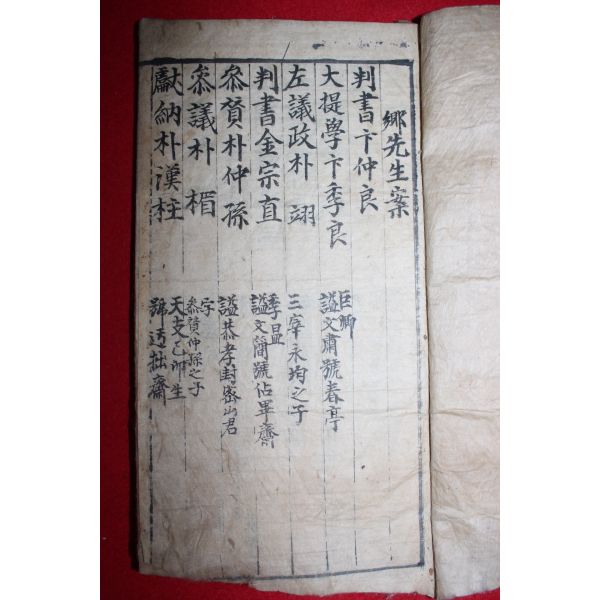 鄉先生案
判書卞仲良
大提學卞季良 巨卿 謚文肅號春亭
左議政朴翊 三宰永均之子
判書金宗直 季昷 謚文簡號佔畢齋
叅賛朴仲孫 謚恭孝封密山君
叅議朴楣 字 叅賛仲孫之子
獻納朴漢柱 天支乙卯生 號迂拙齋